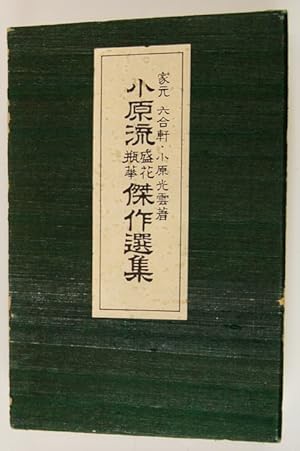 家元 六合軒・小原光雲著
小原流盛花瓶華傑作選集